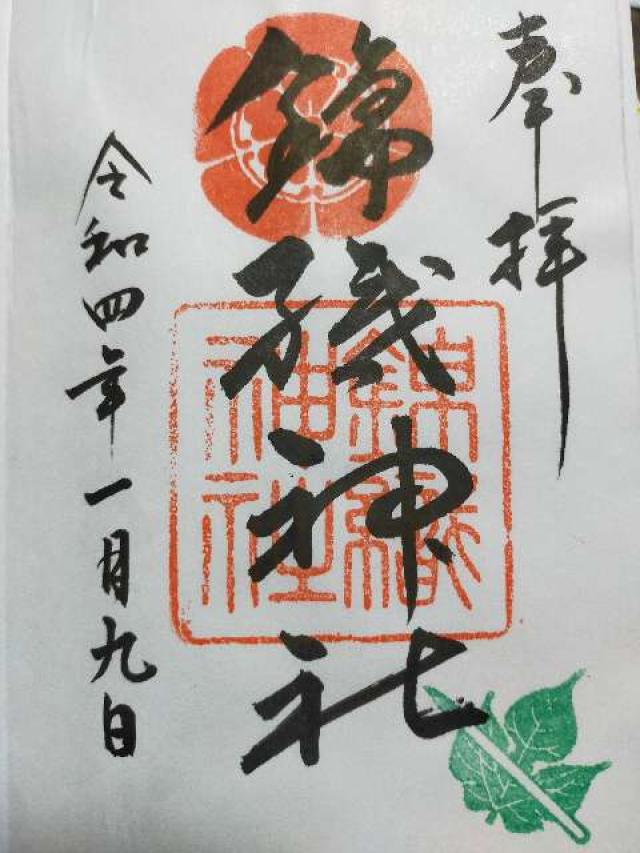 奉拝
錦織神社
錦織神社
令和四年一月九日